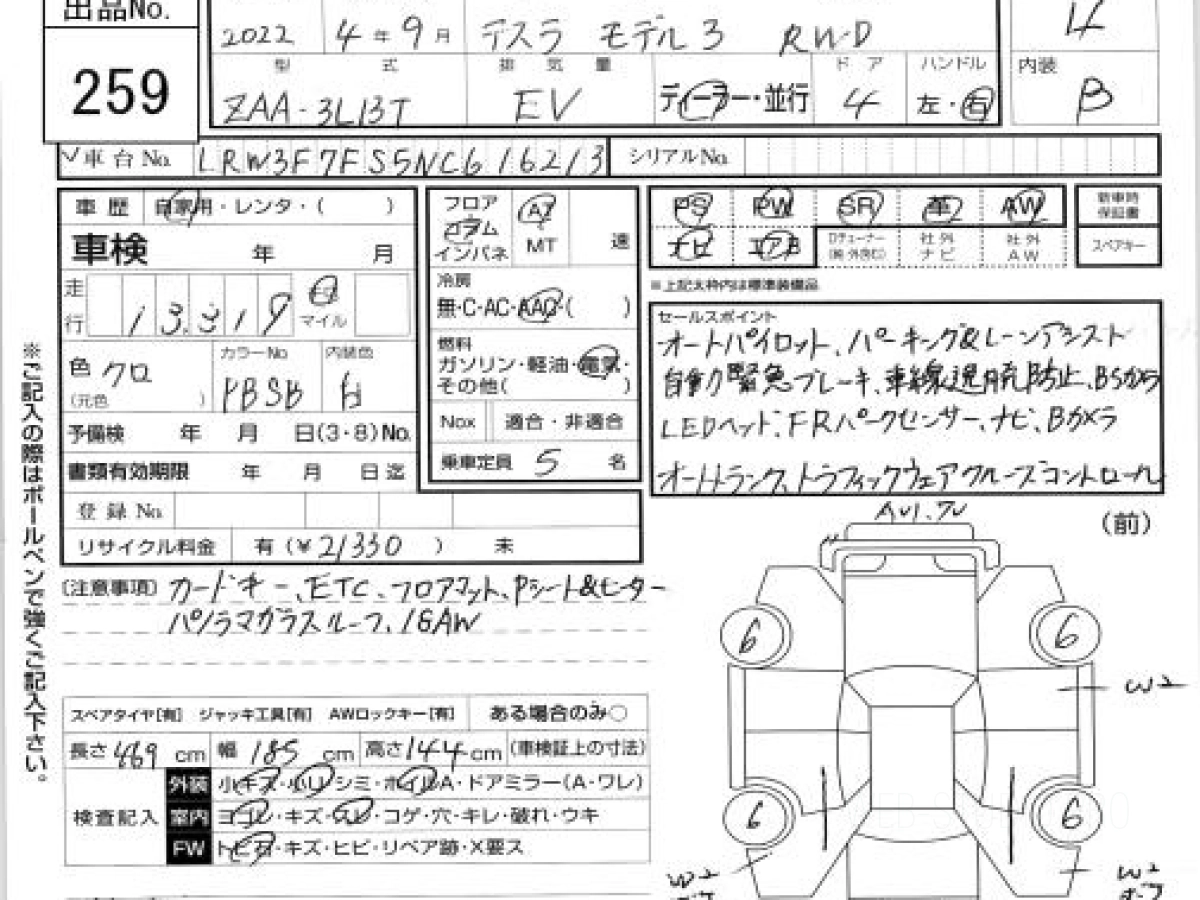 出品No.
259
2022 4年9月 テスラ モデル3 RWD 4
型式 排気量 ドア ハンドル 内装
ZAA-3L13T EV ディーラー・並行 4 左・右 B
車台No. LRW3F7FS5NC616213 シリアルNo.
車歴 自家用・レンタ・( )
車検 年 月
走行 13,319 マイル
色 クロ
(元色 )
カラーNo PBSB
内装色 白
予備検 年 月 日(3・8)No.
書類有効期限 年 月 日迄
登録No.
リサイクル料金 有(¥21330 ) 未
フロア
コラム
インパネ
AT
MT 速
冷房
無・C・AC・AAC・( )
燃料
ガソリン・軽油・電気・
その他( )
Nox 適合・非適合
乗車定員 5 名
PS PW SR 革 AW
ナビ エアB Dチューナー 社外ナビ 社外AW
新車時
保証書
スペアキー
※上記太枠内は標準装備品
セールスポイント
オートパイロット、パーキング&レーンアシスト
自動緊急ブレーキ、車線逸脱防止、BSカメラ
LEDヘッド、FRパークセンサー、ナビ、Bカメラ
オートトランク、トラフィックウェアクルーズコントロール
(注意事項) カードキー、ETC、フロアマット、Pシート&ヒーター
パノラマガラスルーフ、18AW
※ご記入の際はボールペンで強くご記入下さい。
スペアタイヤ[有] ジャッキ工具[有] AWロックキー[有] ある場合のみ○
長さ469cm 幅185cm 高さ144cm (車検証上の寸法)
検査記入
外装 小キズ・小凹・シミ・ホイルA・ドアミラー(A・ワレ)
室内 ヨゴレ・キズ・スレ・コゲ・穴・キレ・破れ・ウキ
FW トビ石・キズ・ヒビ・リペア跡・X要ス
(前)
6 6
W2
6 6
W2
W2